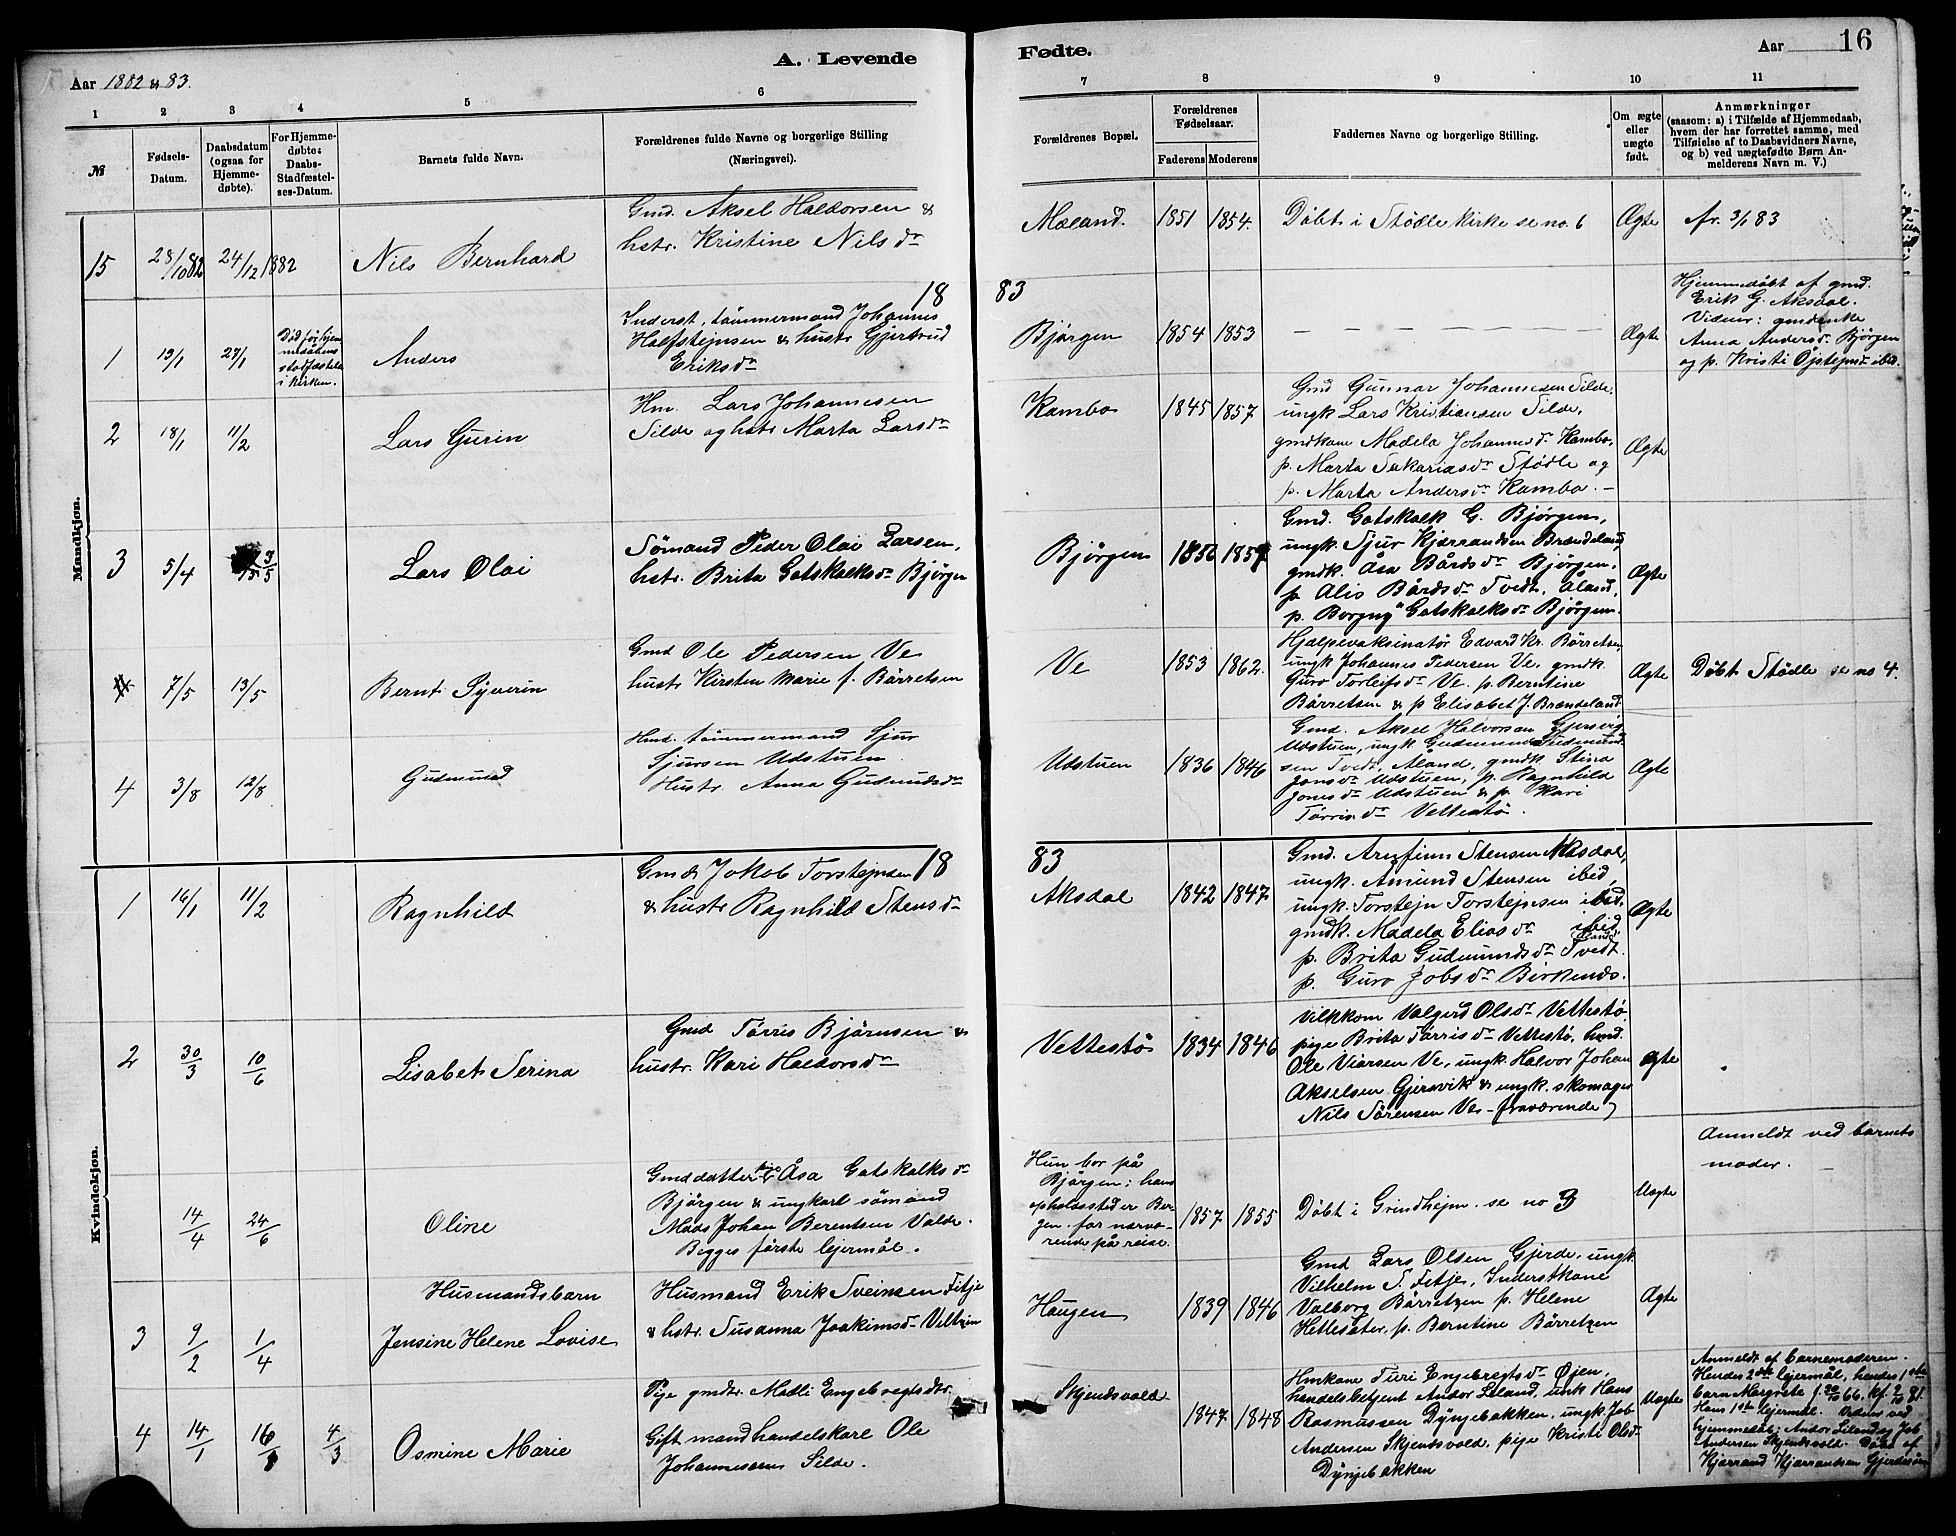 Aar 1882 & 83.
A. Levende
Fødte.
Aar 16
1 2 3 4 5 6 7 8 9 10 11
№
Fødsels-Datum.
Daabsdatum (ogsaa for Hjemme-døbte).
For Hjemme-døbte: Daabs-Stadfæstel-ses-Datum.
Barnets fulde Navn.
Forældrenes fulde Navne og borgerlige Stilling
(Næringsvei).
Forældrenes Bopæl.
Forældrenes Fødselsaar.
Faderens Moderens
Faddernes Navne og borgerlige Stilling.
Om ægte eller uægte født.
Anmærkninger
(saasom: a) i Tilfælde af Hjemmedaab,
hvem der har forrettet samme, med
Tilføielse af to Daabsvidners Navne,
og b) ved uægtefødte Børn An-
melderens Navn m. V.)
Mandkjøn.
15 28/10 82 24/12 1882 Nils Bernhard
Gmd. Aksel Haldorsen &
hstr. Kristine Nilsdr
Møland. 1851 1854. Døbt i Stødle kirke se no. 6 Ægte Av. 3/1 83
18 83
1 13/1 27/1
Død før hjem
medåbens
stadfæstelse
i kirken.
Anders
Inderst, tømmermand Johannes
Halfstejnsen & hustr Gjertrud
Eriksdr
Bjørgen 1854 1853 — — — — Ægte
Hjemmedøbt af gmd.
Erik G. Aksdal.
Vidner: gmdenke
Anna Andersdr. Bjørgen
og p. Kristi Øjstejnsdr ibid.
2 18/1 11/2 Lars Gurin
Hm. Lars Johannesen
Silde og hstr Marta Larsdr
Kambo 1845 1857.
Gmd Gunnar Johannesen Silde,
ungk Lars Kristiansen Silde,
gmdkone Madela Johannesdr Kambo,
p. Marta Sakariasdr Stødle og
p. Marta Andersdr Kambo. —
Ægte
3 5/4 15 3/5 Lars Olai
Sømand Peder Olai Larsen,
hstr. Brita Gatskalksdr Bjørgen
Bjørgen 1856 1857
Gmd. Gatskalk G. Bjørgen,
ungk. Sjur Kjærrandsen Brændeland,
gmdk. Åsa Bårdsdr Bjørgen,
p Alis Bårdsdr Tvedt, Åland,
p. Borgny Gatskalksdr Bjørgen.
Ægte
7/5 13/5 Bernt Syverin
Gmd Ole Pedersen Ve
hustr Kirsten Marie f. Børretsen
Ve 1853 1862.
Hjælpevaksinatør Edvard Kr. Børretsen,
ungk Johannes Pedersen Ve, gmdk.
Guro Torleifsdr Ve. p. Berntine
Børretsen & p Elisabet J. Brændeland
Ægte Døbt Stødle se no 4.
4 3/8 12/8 Gudmund
Hmd. tømmermand Sjur
Sjursen Udstuen.
Hustr. Anna Gudmundsdr
Udstuen 1836 1846
Gmd. Aksel Halvorsen Gjersvig
Udstuen, ungk Gudmund Gudmund
sen Tvedt, Åland, gmdk Stina
Jonsdr Udstuen, p. Ragnhild
Jonsdr Udstuen & p. Kari
Tørrisdr Vettestø.
Ægte
Kvindekjøn.
18 83
1 16/1 11/2 Ragnhild
Gmd Jakob Torstejnsen
& hustr Ragnhild Stensdr
Aksdal 1842 1847.
Gmd. Arnfinn Stensen Aksdal,
ungk. Amund Stensen ibid,
ungk. Torstejn Torstejnsen ibid,
gmdk. Madela Eliasdr ibid,
p. Brita Gudmundsdr Tvedt
p. Guro Jobsdr Birkenes.
Ægte
2 30/3 10/6 Lisabet Serina
Gmd Tørris Bjørnsen &
hustr. Kari Haldorsdr
Vettestø 1834 1846
Vilkkom Valgerd Olsdr Vettestø,
pige Brita Tørrisdr Vettestø, hmd.
Ole Viarsen Ve, ungk. Halvor Johan
Akselsen Gjersvik & ungk. skomager
Nils Sørensen Ve – fraværende
Ægte
14/4 24/6 Oline
Gmddatter pige Åsa Gatskalksdr
Bjørgen & ungkarl sømand
Mads Johan Berentsen Valde.
Begges første lejermål.
Hun bor på
Bjørgen; hans
opholdssted er Ber
gen. for nærvæ-
rende på reise.
1857. 1855 Døbt i Grindhejm. se no 3 Uægte
Anmeldt ved barnets
moder. —
Husmandsbarn
3 9/2 1/4 Jensine Helene Lovise
Husmand Erik Sveinsen Fitje
& hstr. Susanna Joakimsdr Veltzin
Haugen 1839 1846
Gmd Lars Olsen Gjerde, ungk.
Vilhelm S. Fitje, Inderstkone
Valborg Børretzen p. Helene
Hettesæter, p. Berntine Børretzen
Ægte
4 14/1 16 4/3 Osmine Marie
Pige gmdtr. Madli Engebregtsdtr.
Gift mand handelskarl Ole
Johannesen Silde.
Skjendsvold 1847. 1848
Hmkone Turi Engebregtsdr Øjen,
handelsbetjent Andor Leland, unk Hans
Rasmussen Dynjebakken, ungk Job
Andersen Skjendsvold, pige Kristi Olsdr
Dynjebakken
Uægte
Anmeldt af barnemoderen.
Hendes 2det lejermål, hendes 1ste
barn Margrete f. 20/10 66, kf. 2/10 81.
Hans 1ste lejermål. Vidner ved
hjemmedåb: Andor Leland og Job
Andersen Skjendsvold. Døbt af
Kjærrand Kjærrandsen Gjerdesøen